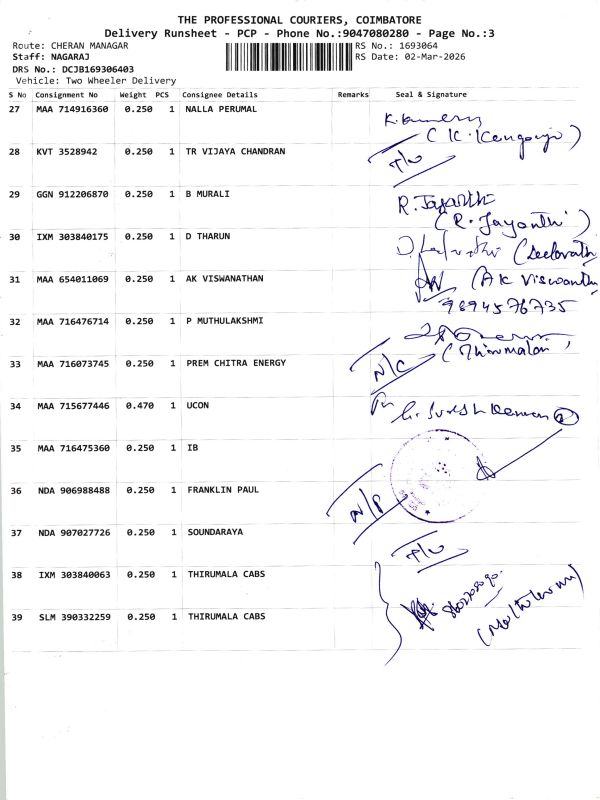 THE PROFESSIONAL COURIERS, COIMBATORE
Delivery Runsheet - PCP - Phone No.:9047080280 - Page No.:3
Route: CHERAN MANAGAR RS No.: 1693064
Staff: NAGARAJ RS Date: 02-Mar-2026
DRS No.: DCJB169306403
Vehicle: Two Wheeler Delivery
S No Consignment No Weight PCS Consignee Details Remarks Seal & Signature
27 MAA 714916360 0.250 1 NALLA PERUMAL
28 KVT 3528942 0.250 1 TR VIJAYA CHANDRAN
29 GGN 912206870 0.250 1 B MURALI R. Jayanthi
(R. Jayanthi)
30 IXM 303840175 0.250 1 D THARUN
31 MAA 654011069 0.250 1 AK VISWANATHAN (AK Viswanth
9894576735
32 MAA 716476714 0.250 1 P MUTHULAKSHMI
33 MAA 716073745 0.250 1 PREM CHITRA ENERGY N/C
34 MAA 715677446 0.470 1 UCON
35 MAA 716475360 0.250 1 IB
36 NDA 906988488 0.250 1 FRANKLIN PAUL N/P
37 NDA 907027726 0.250 1 SOUNDARAYA
38 IXM 303840063 0.250 1 THIRUMALA CABS
39 SLM 390332259 0.250 1 THIRUMALA CABS